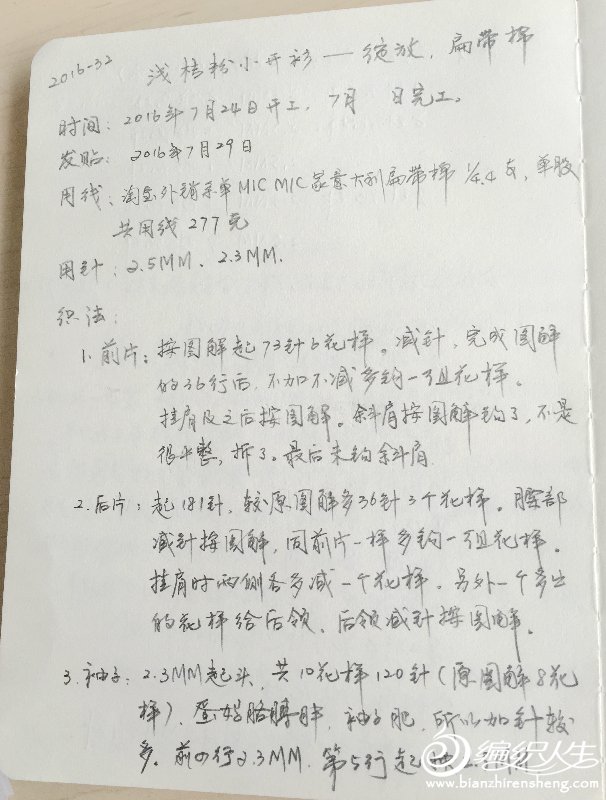 2016-32 浅桔粉小开衫——绽放,扁带棉
时间:2016年7月24日开工,7月 日完工。
发贴:2016年7月29日
用线:淘宝外销余单MIC MIC家意大利扁带棉 1/4.4支,单股
共用线277克
用针:2.5MM、2.3MM.
织法:
1.前片:按图解起73针6花样。减针,完成图解
的36行后,不加不减多钩一组花样。
挂肩及之后按图解。斜肩按图解钩了,不是
很平整,拆了。最后未钩斜肩
2.后片:起181针,较原图解多36针3个花样。腰部
减针按图解,同前片一样多钩一组花样。
挂肩时两侧各多减一个花样,另外一个多出
的花样给后领,后领减针按图解。
3.袖子:2.3MM起头,共10花样120针(原图解8花
样),胳膊胖,袖子肥,所以加针较
多。前4行2.3MM,第5行起
编织人生
www.bianzhirensheng.com